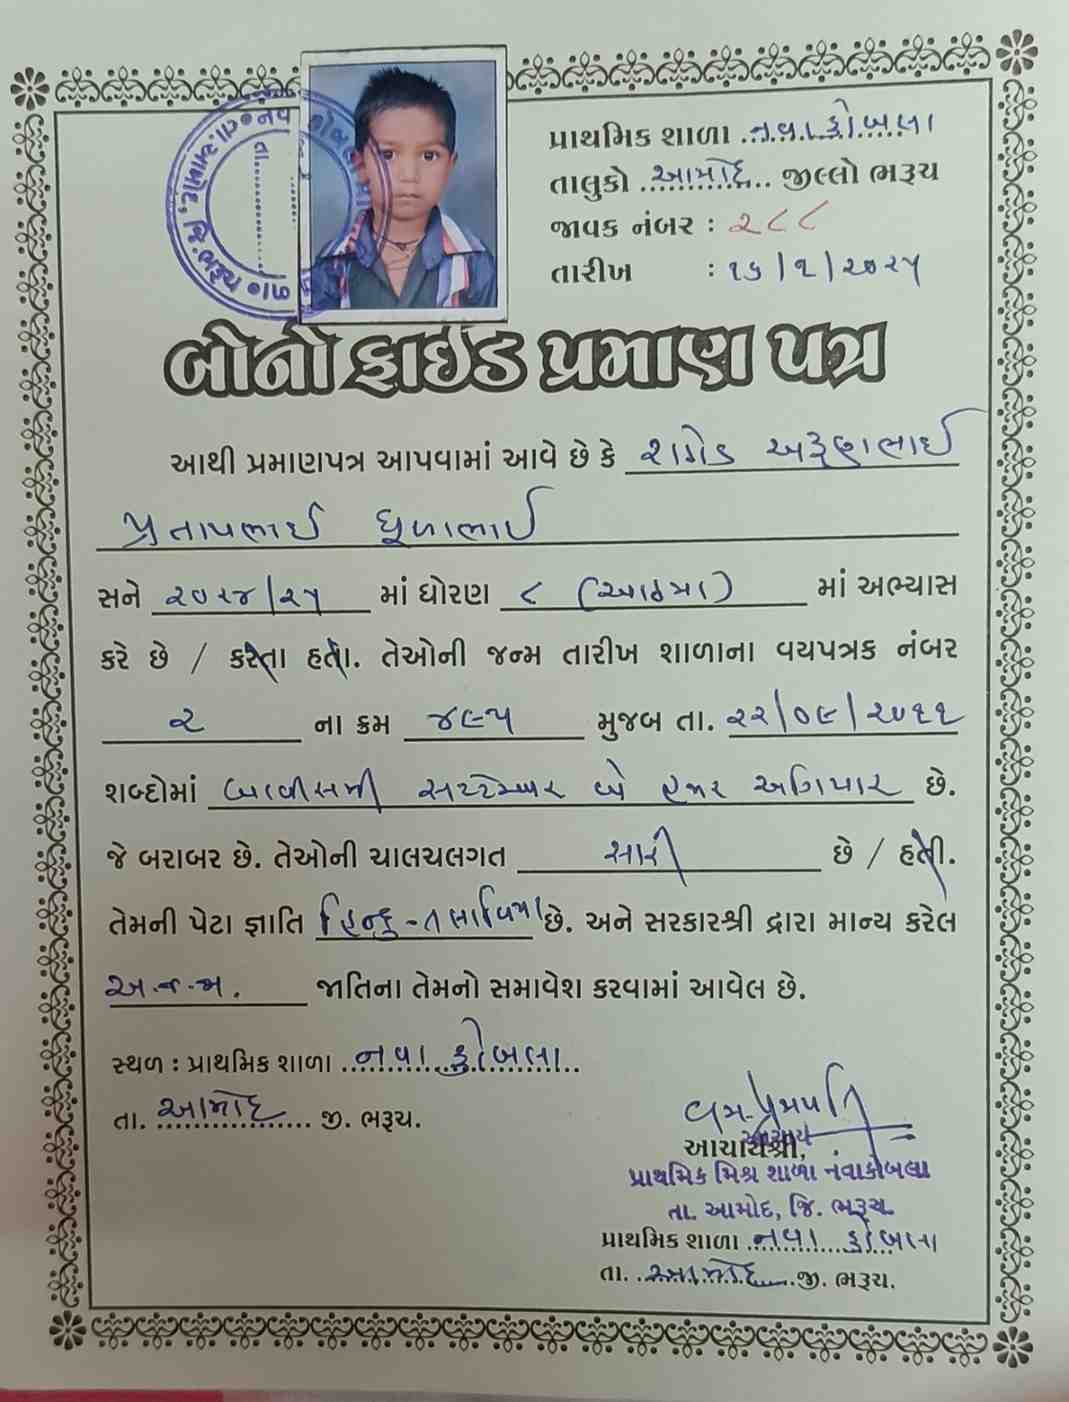 પ્રાથમિક શાળા નવા કોબલા
તાલુકો આમોદ જીલ્લો ભરૂચ
જાવક નંબર : ૨૮૮
તારીખ : ૧૬/૧/૨૦૨૫
બોનોફાઈડ પ્રમાણ પત્ર
આથી પ્રમાણપત્ર આપવામાં આવે છે કે રાઠોડ અરૂણભાઈ
પ્રતાપભાઈ ધૂળાભાઈ
સને ૨૦૨૪/૨૫ માં ધોરણ ૮ (આઠમા) માં અભ્યાસ
કરે છે / કરતા હતા. તેઓની જન્મ તારીખ શાળાના વયપત્રક નંબર
૨ ના ક્રમ ૪૯૫ મુજબ તા. ૨૨/૦૯/૨૦૧૧
શબ્દોમાં બાવીસમી સપ્ટેમ્બર બે હજાર અગિયાર છે.
જે બરાબર છે. તેઓની ચાલચલગત સારી છે / હતી.
તેમની પેટા જ્ઞાતિ હિન્દુ - તલાવિયા છે. અને સરકારશ્રી દ્વારા માન્ય કરેલ
અ.જ.જા. જાતિના તેમનો સમાવેશ કરવામાં આવેલ છે.
સ્થળ : પ્રાથમિક શાળા નવા કોબલા
તા. આમોદ જી. ભરૂચ.
આચાર્ય
આચાર્યશ્રી,
પ્રાથમિક મિશ્ર શાળા નવાકોબલા
તા. આમોદ, જિ. ભરૂચ.
પ્રાથમિક શાળા નવા કોબલા
તા. આમોદ જી. ભરૂચ.